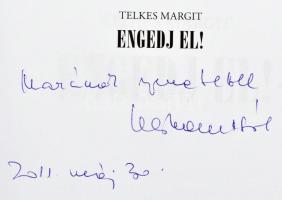 TELKES MARGIT
ENGEDJ EL!
Marának szeretettel
2011. máj 30.